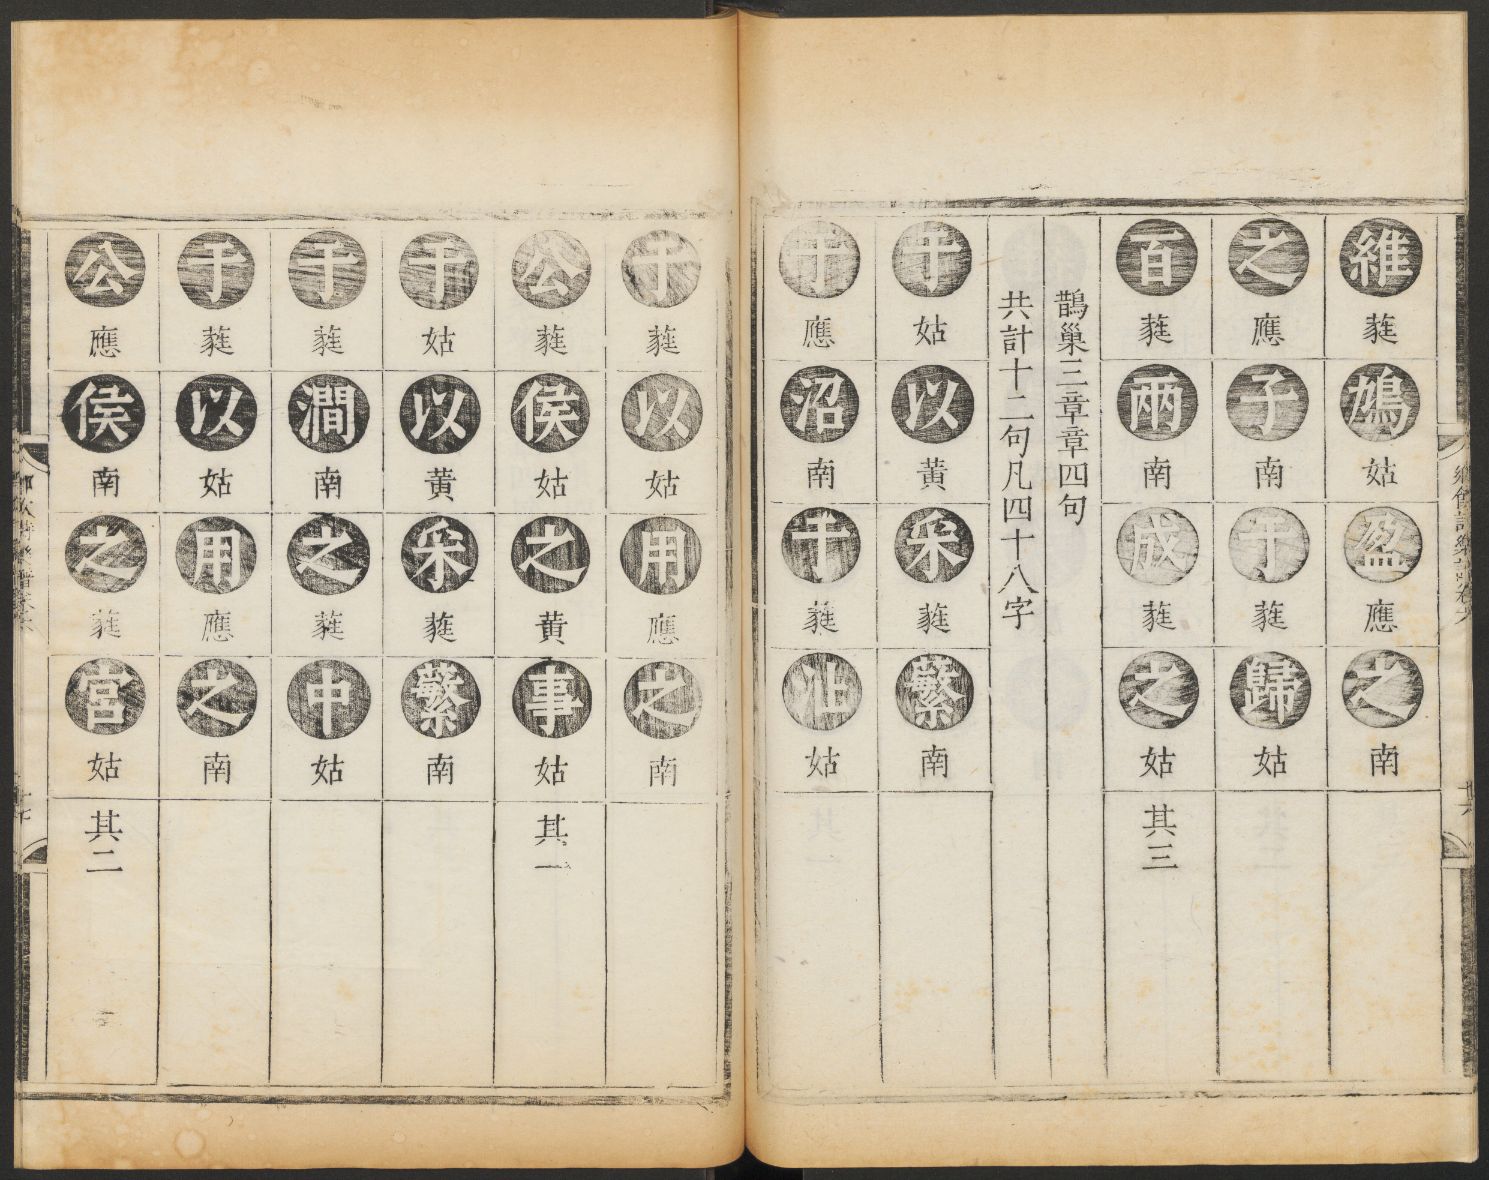 維蕤鳩姑盈應之南
之應子南于蕤歸姑
百蕤兩南成蕤之姑其三
鵲巢三章章四句
共計十二句凡四十八字
于姑以黃采蕤蘩南
于應沼南于蕤沚姑
于蕤以姑用應之南
公蕤侯姑之黃事姑其一
于姑以黃采蕤蘩南
于蕤澗南之蕤中姑
于蕤以姑用應之南
公應侯南之蕤宮姑其二